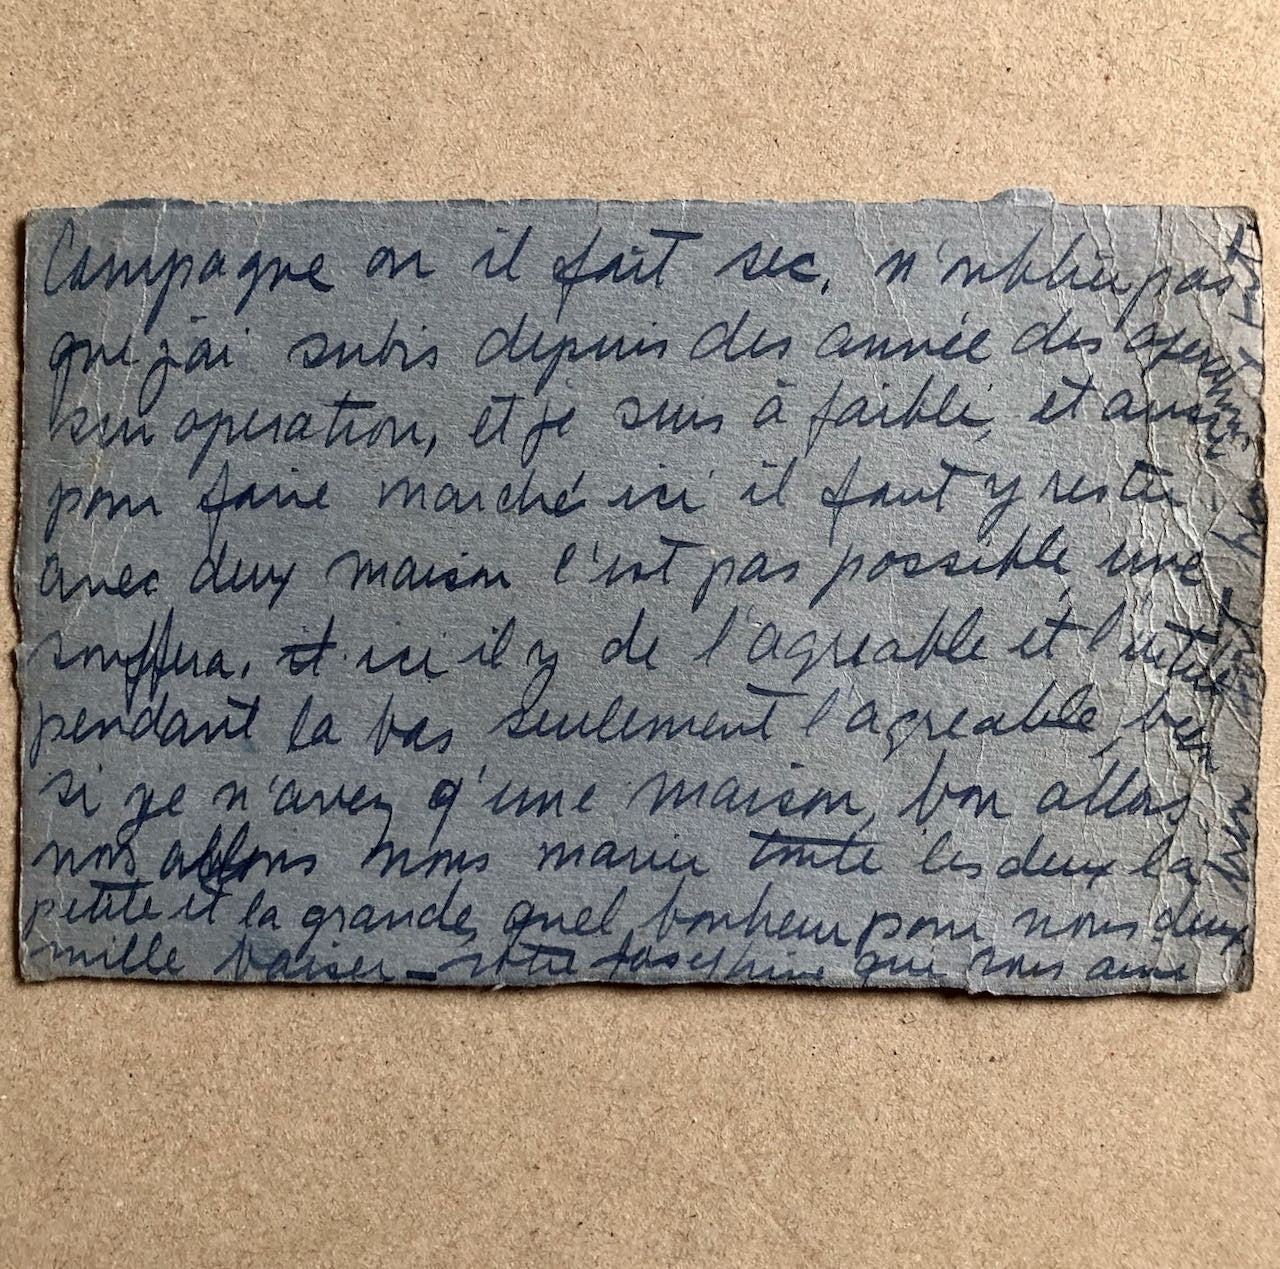 Campagne ou il fait sec. n'oublier pas
que j'ai subis depuis des année des operations
sur operation, et je suis à faibli, et aussi
pour faire marché ici il faut y rester
avec deux maison c'est pas possible, une
souffera. et ici il y de l'agreable et l'utile
pendant la bas seulement l'agreable, bien
si je n'avez q'une maison, bon allons
nous allons nous marier toute les deux la
petite et la grande, quel bonheur pour nous deux
mille baiser – votre Josephine qui vous aime